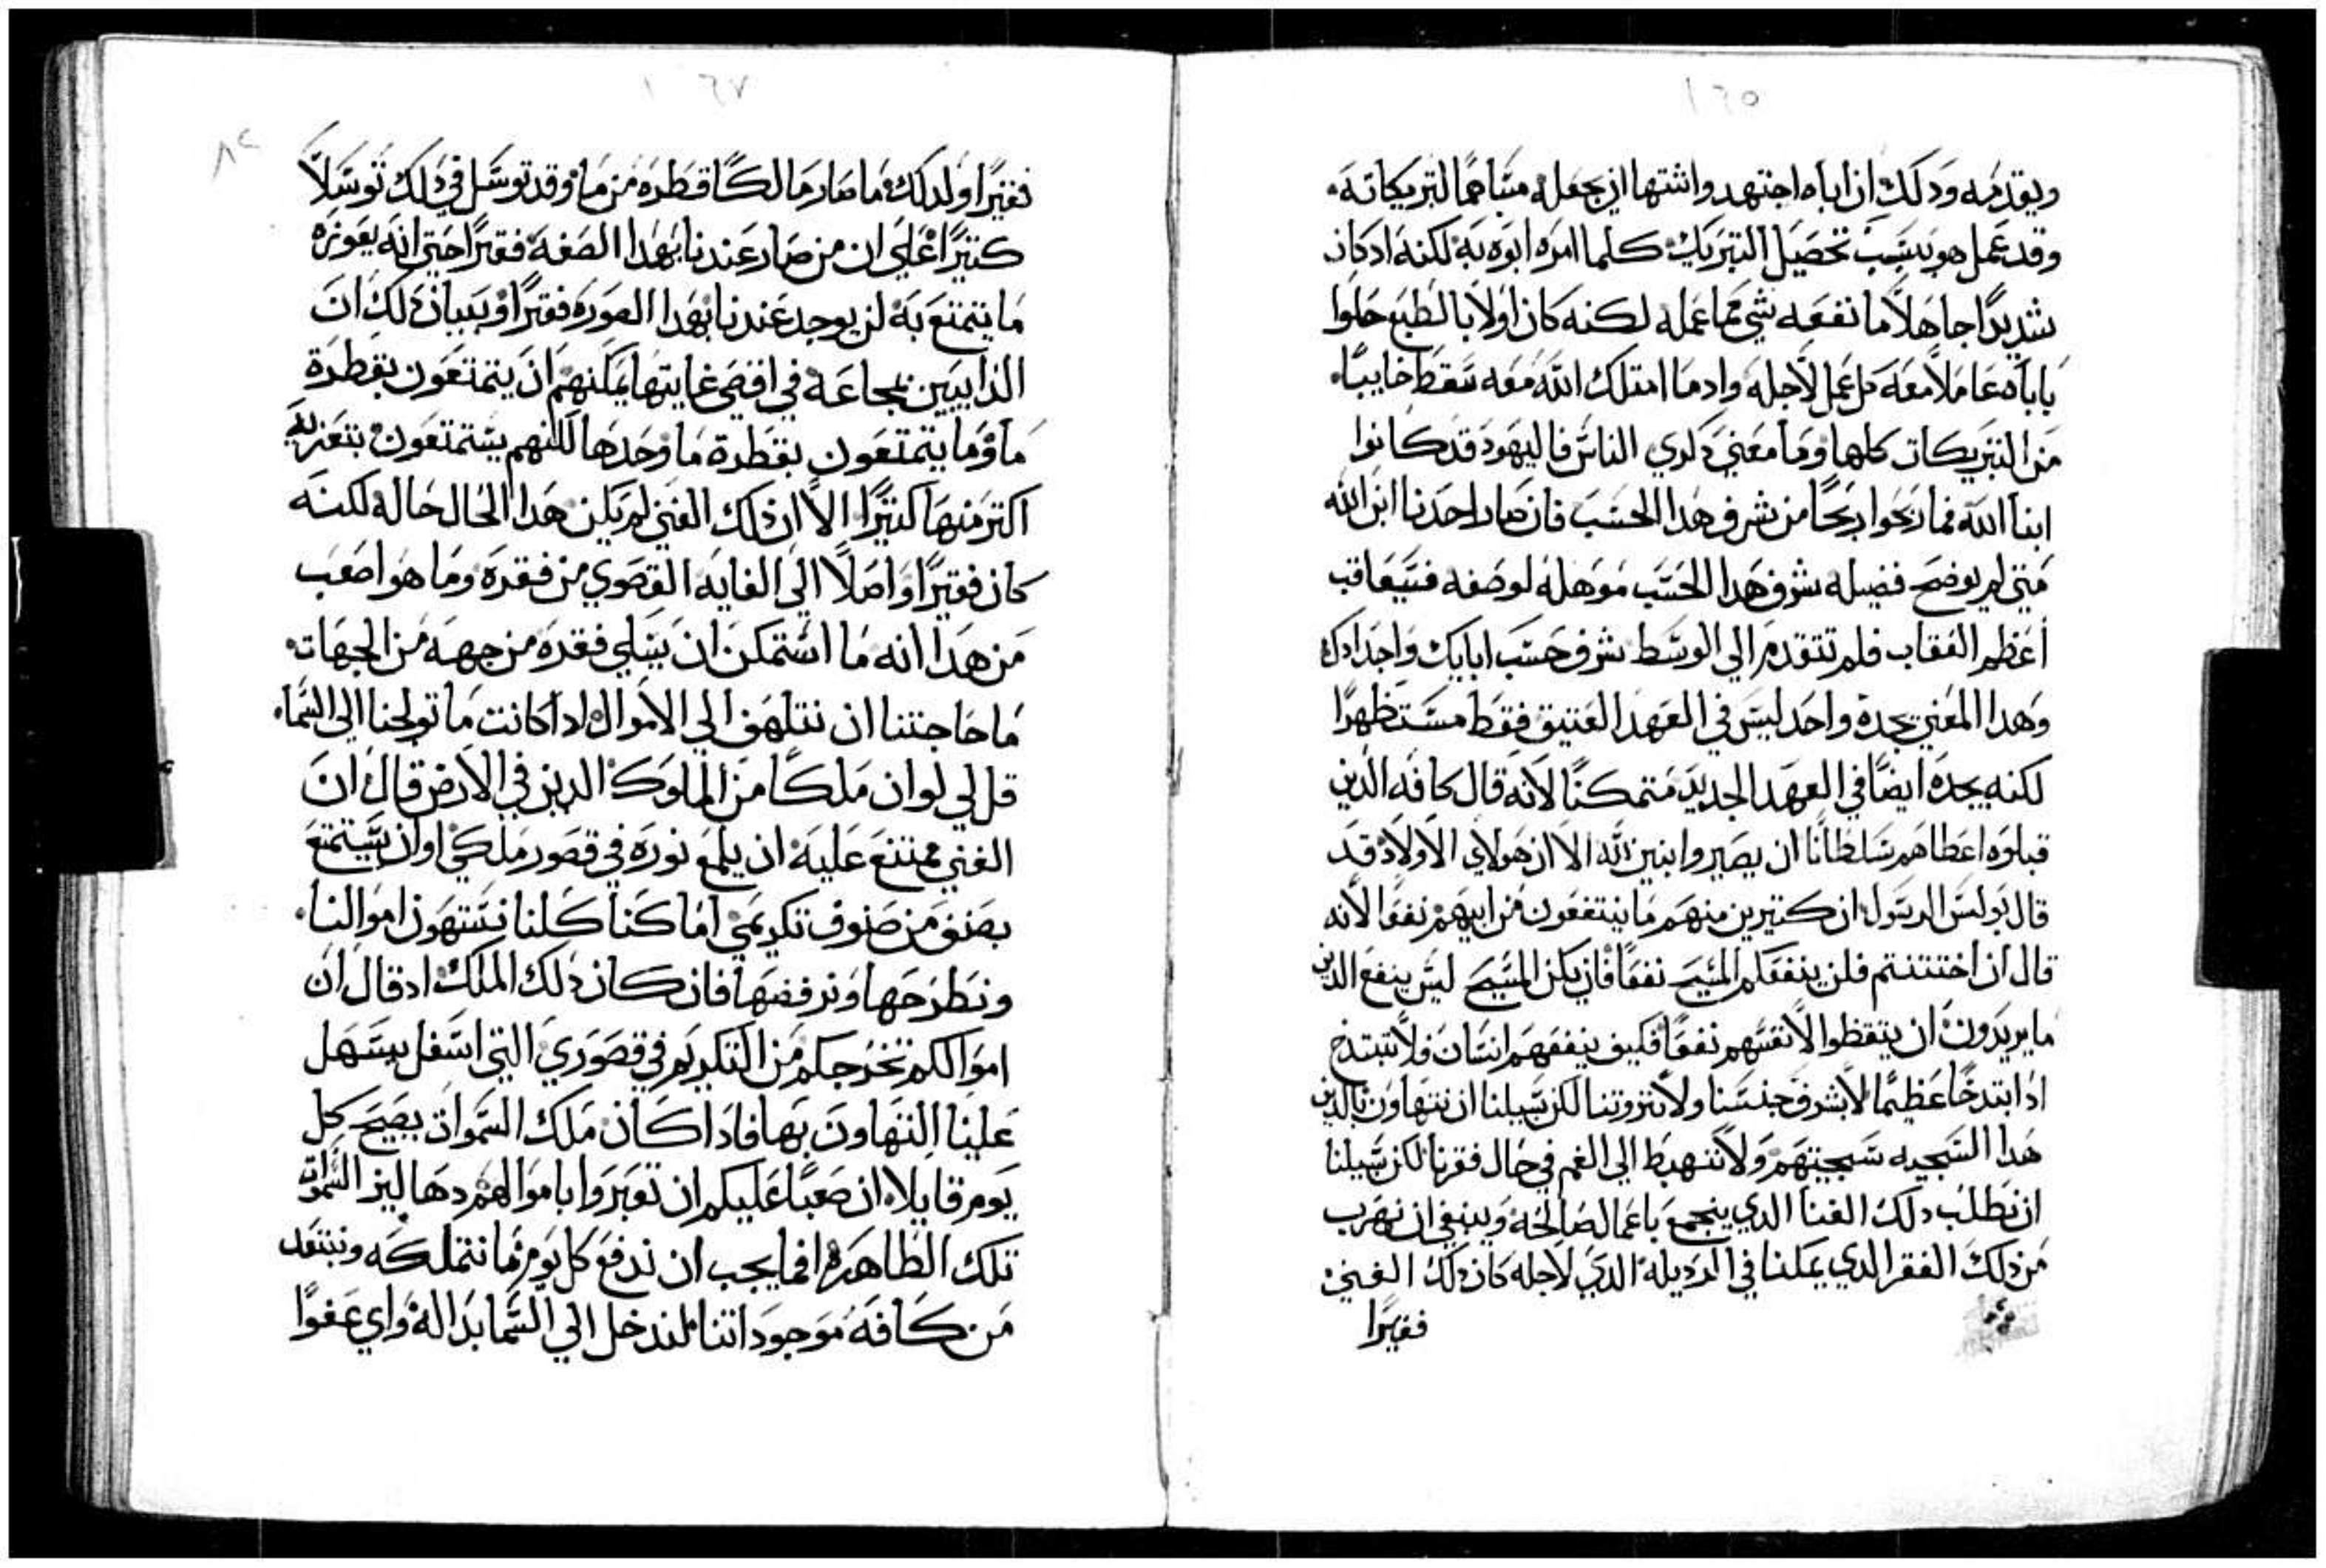 ١٢٥
ويقدمه ودلك ان اباه اجتهد واشتها ان يجعله مساهمًا لتبريكاته
وقد عمل هو بسبب تحصيل التبريك كلما امره ابوه به لكنه ادكان
شديدًا جاهلًا ما نفعه شي مما عمله لكنه كان اولا بالطبع حلوا
باباه عاملا معه كل عمل لاجله وادما امتلك الله معه سقط خايبًا
من التبريكات كلها وما معني دكري الناس فاليهود قد كانوا
ابنا الله فما ربحوا ربحًا من شرف هدا الحسب فان صار احدنا ابن الله
متي لم يوضح فضيله شرف هدا الحسب موهله لوصفه فسيعاقب
اعظم العقاب فلم تتقدم الي الوسط شرف حسب ابايك واجدادك
وهدا المعني يجده واحد ليس في العهد العتيق فقط مستظهرًا
لكنه يجده ايضًا في العهد الجديد متمكنًا لانه قال كافه الدين
قبلوه اعطاهم سلطانًا ان يصيروا بنين لله الا ان هولاي الاولاد قد
قال بولس الرسول ان كتيرين منهم ما ينتفعون من ابيهم نفعًا لانه
قال ان اختتنتم فلن ينفعكم المسيح نفعًا فان يكن المسيح ليس ينفع الدين
ما يريدون ان يتقظوا لانفسهم نفعًا فكيف ينفعهم انسان فلا نبتدخ
ادا ابتدخًا عظيمًا لا بشرف جنسنا ولا بثروتنا لكن سبيلنا ان نتهاون بالدين
هدا السجيه سجيتهم ولا ننهبط الي الغم في حال فقرنا لكن سبيلنا
ان نطلب دلك الغنا الدي ينجمع باعمال صالحه وينبغي ان نهرب
من دلك الفقر الدي يمكنا في الرديله الدي لاجله كان دلك الغني
فقيرًا
١٢٧
٨٢
فقيرًا ولدلك ما صار مالكًا قطره من ما وقد توسل في دلك توسلًا
كتيرًا علي ان من صار عندنا بهدا الصفه فقيرًا حتي انه يعوزه
ما يتمتع به لن يوجد عندنا بهدا الصوره فقيرًا وبيان دلك ان
الدايبين بمجاعه في اقصي غايتها يمكنهم ان يتمتعون بقطرة
ما وما يتمتعون بقطرة ما وحدها لكنهم يستمتعون بتعزيه
اكتر منها كتيرًا الا ان دلك الغني لم يكن هدا الحال حاله لكنه
كان فقيرًا واصلًا الي الغايه القصوي من فقره وما هو اصعب
من هدا انه ما استمكن ان يسلي فقره من جهه من الجهات
ما حاجتنا ان نتلهف الي الاموال ادا كانت ما تولجنا الي السما
قل لي لو ان ملكًا من الملوك الدين في الارض قال ان
الغني ممتنع عليه ان يلمع نوره في قصور ملكي او ان يستمتع
بصنف من صنوف تكريمي اما كنا كلنا نستهون اموالنا
ونطرحها ونرفضها فان كان دلك الملك اد قال ان
اموالكم تخرجكم من التكريم في قصوري التي اسفل يسهل
علينا التهاون بها فادا كان ملك السموات يصيح كل
يوم قايلا ان صعبًا عليكم ان تعبروا باموالكم دهاليز السموات
تلك الطاهره افما يجب ان ندفع كل يوم ما نتملكه ونبتعد
من كافه موجوداتنا لندخل الي السما بداله واي عفوًا